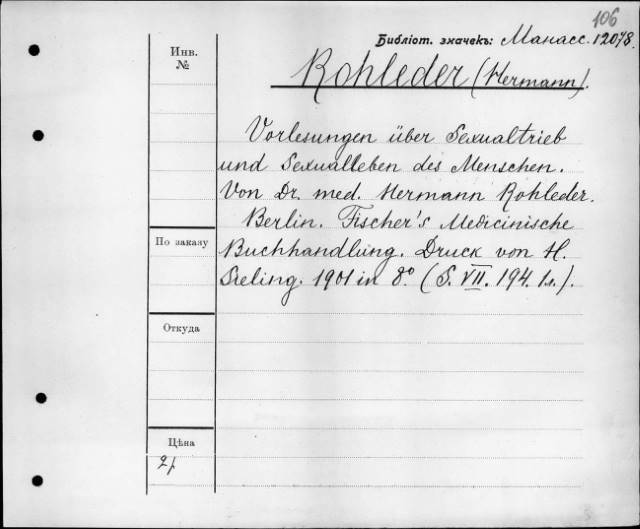 106
Библіот. значекъ: Манасс. 12078.
Инв.
№
Rohleder (Hermann).
Vorlesungen über Sexualtrieb
und Sexualleben des Menschen.
Von Dr. med. Hermann Rohleder.
Berlin. Fischer's Medicinische
По заказу
Buchhandlung. Druck von H.
Sieling. 1901 in 8° (S. VII. 194. 1л.).
Откуда
Цѣна